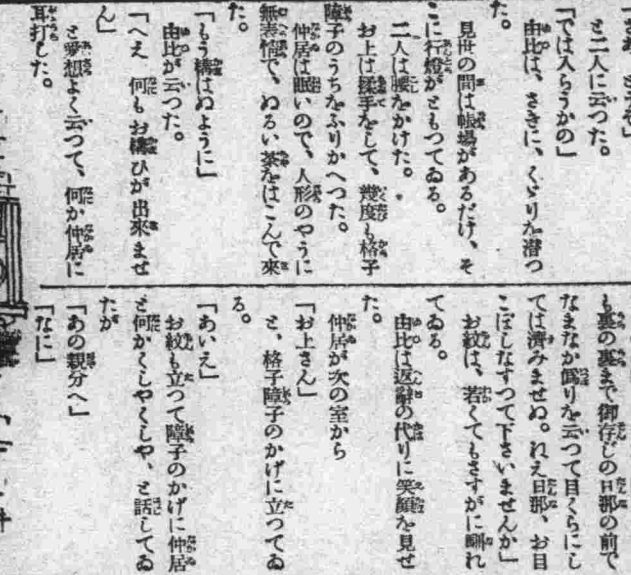 「さあ、どうぞ」
と二人に云つた。
「では入らうかの」
由比は、さきに、くゞりを潜つ
た。
見世の間は帳場があるだけ、そ
こに行燈がともつてゐる。
二人は腰をかけた。
お上は揉手をして、幾度も格子
障子のうちをふりかへつた。
仲居は眠いので、人形のやうに
無表情で、ぬるい茶をはこんで來
た。
「もう構はぬように」
由比が云つた。
「へえ 何もお構ひが出來ませ
ん」
と愛想よく云つて、何か仲居に
耳打した。
も裏の裏まで御存じの旦那の前で
なまなか僞りを云つて目くらにし
ては濟みませぬ。ねえ旦那、お目
こぼしなすつて下さいませんか」
お紋は、若くてもさすがに馴れ
てゐる。
由比は返辭の代りに笑顏を見せ
た。
仲居が次の室から
「お上さん」
と、格子障子のかげに立つてゐ
る。
「あいえ」
お紋も立つて障子のかげに仲居
と何かくしやくしや、と話してゐ
たが
「あの親分へ」
「なに」